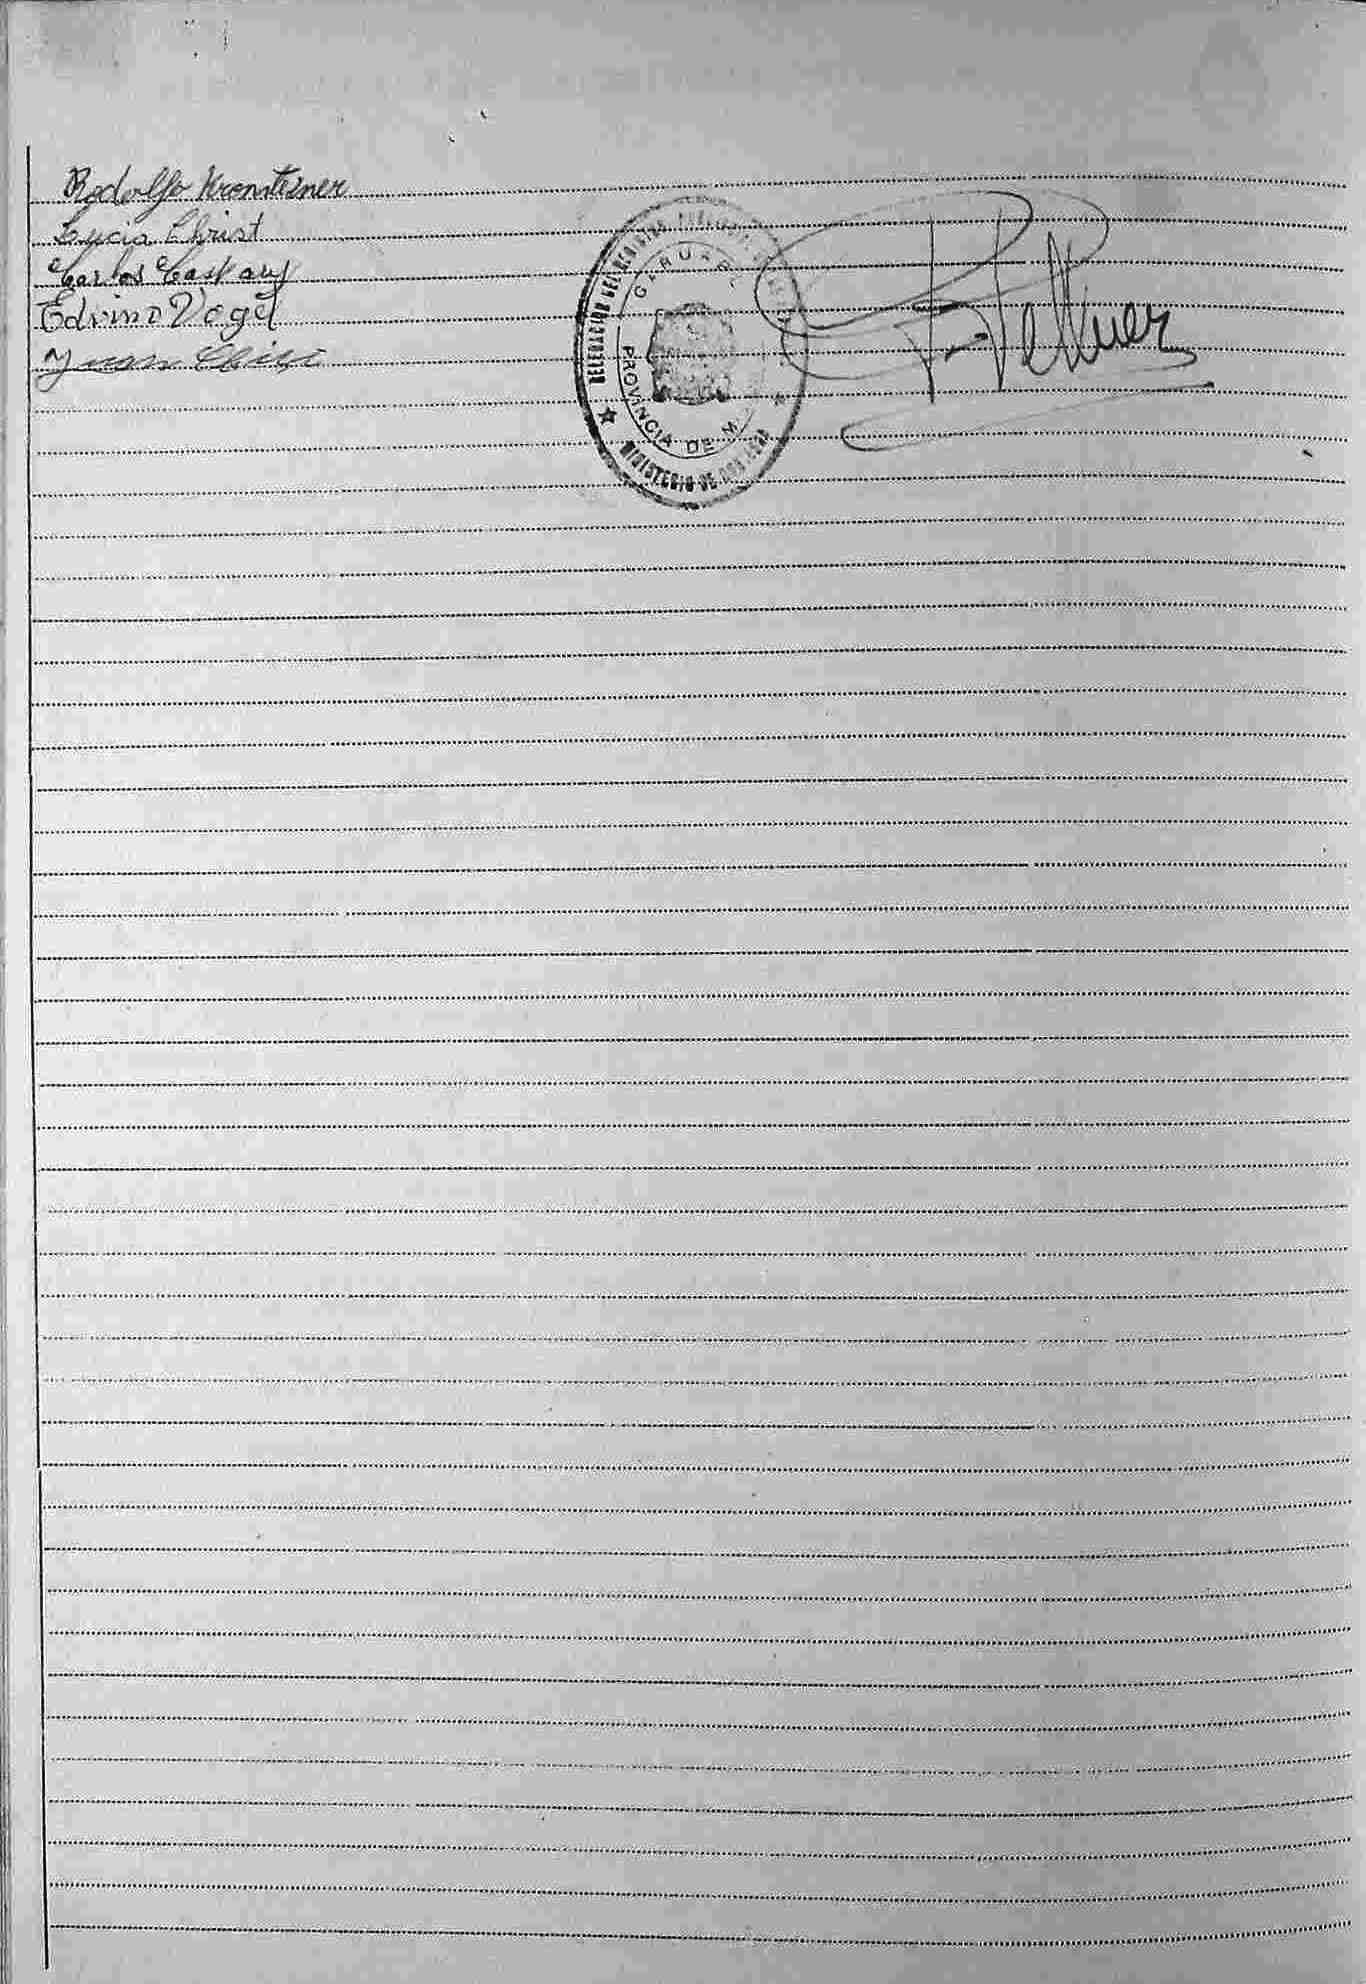 Rodolfo Kronsteiner
Lucia Christ
Carlos Caspary
Edvino Vogel
Juan Christ
DELEGACION DEL REGISTRO
GARUAPE
PROVINCIA DE M
MINISTERIO DE GOBIERNO